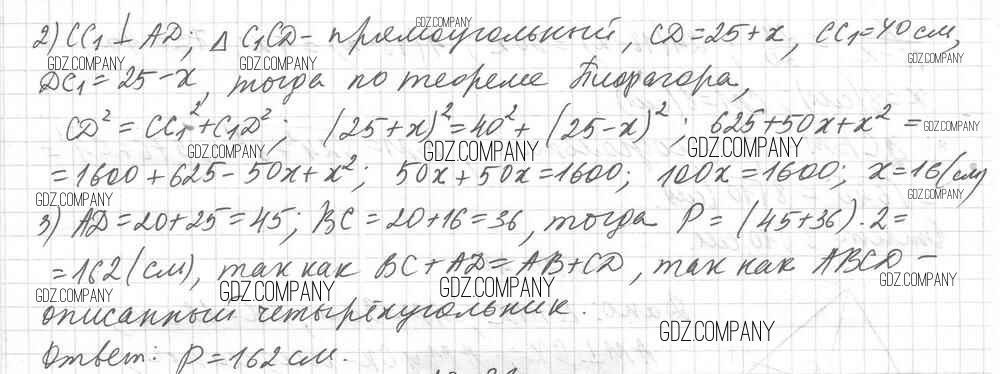 GDZ.COMPANY
2) CC₁ ⊥ AD; Δ C₁CD – прямоугольный, CD = 25 + x, CC₁ = 40 см,
GDZ.COMPANY GDZ.COMPANY GDZ.COMPANY
DC₁ = 25 – x, тогда по теореме Пифагора,
CD² = CC₁² + C₁D²; (25 + x)² = 40² + (25 – x)²; 625 + 50x + x² = GDZ.COMPANY
GDZ.COMPANY GDZ.COMPANY GDZ.COMPANY
= 1600 + 625 – 50x + x²; 50x + 50x = 1600; 100x = 1600; x = 16 (см)
GDZ.COMPANY GDZ.COMPANY
3) AD = 20 + 25 = 45; BC = 20 + 16 = 36, тогда P = (45 + 36) · 2 =
= 162 (см), так как BC + AD = AB + CD, так как ABCD –
GDZ.COMPANY GDZ.COMPANY GDZ.COMPANY GDZ.COMPANY
описанный четырёхугольник.
GDZ.COMPANY
Ответ: P = 162 см.